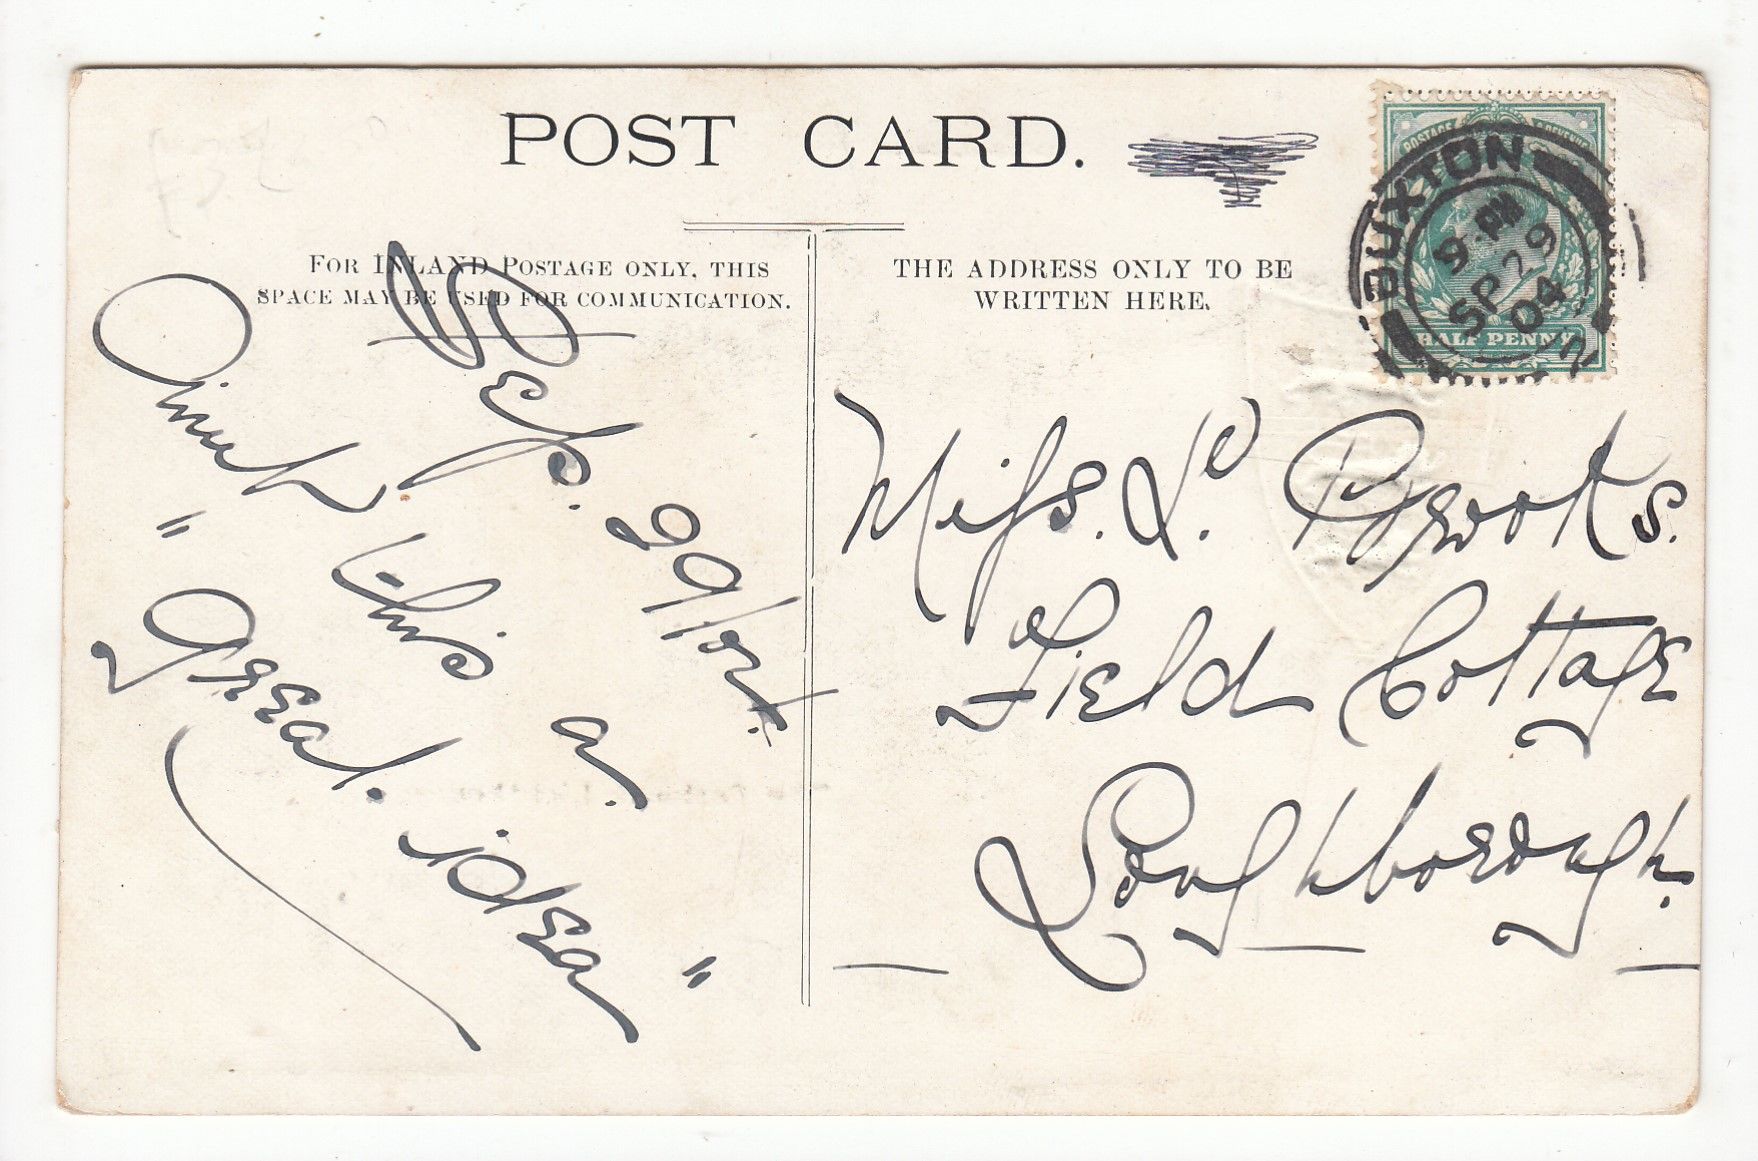 POST CARD.
FOR INLAND POSTAGE ONLY, THIS
SPACE MAY BE USED FOR COMMUNICATION.
THE ADDRESS ONLY TO BE
WRITTEN HERE.
POSTAGE & REVENUE
HALF PENNY
BUXTON
9 PM
SP 29
04
Sep. 29/04.
this a.
"Great. idea"
Miss. L. Brooks.
Field Cottage
Loughborough.